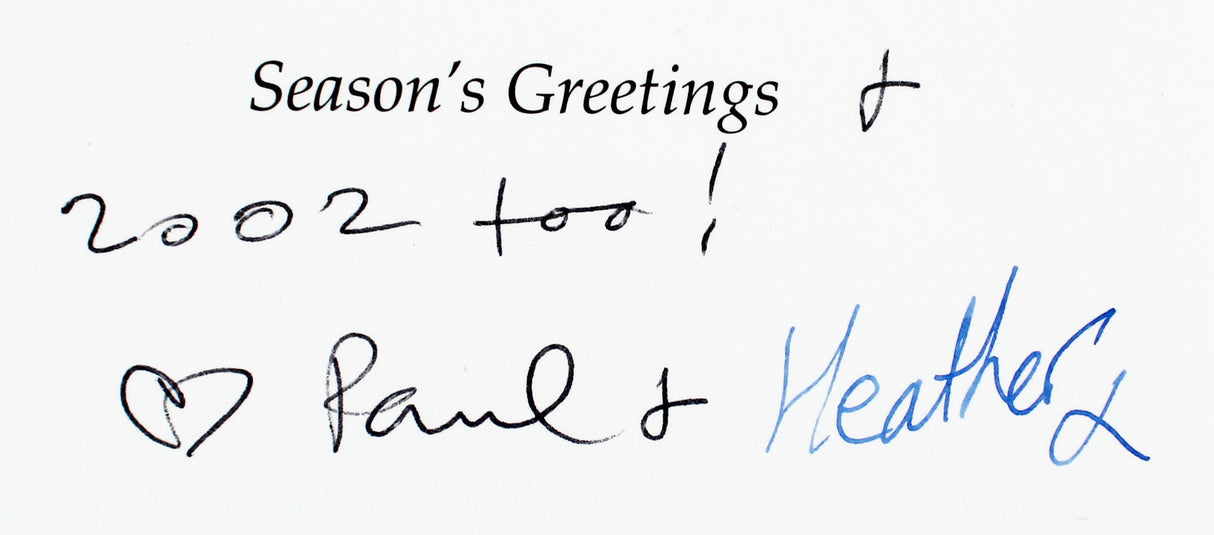 Season's Greetings &
2002 too!
♡ Paul & Heather x